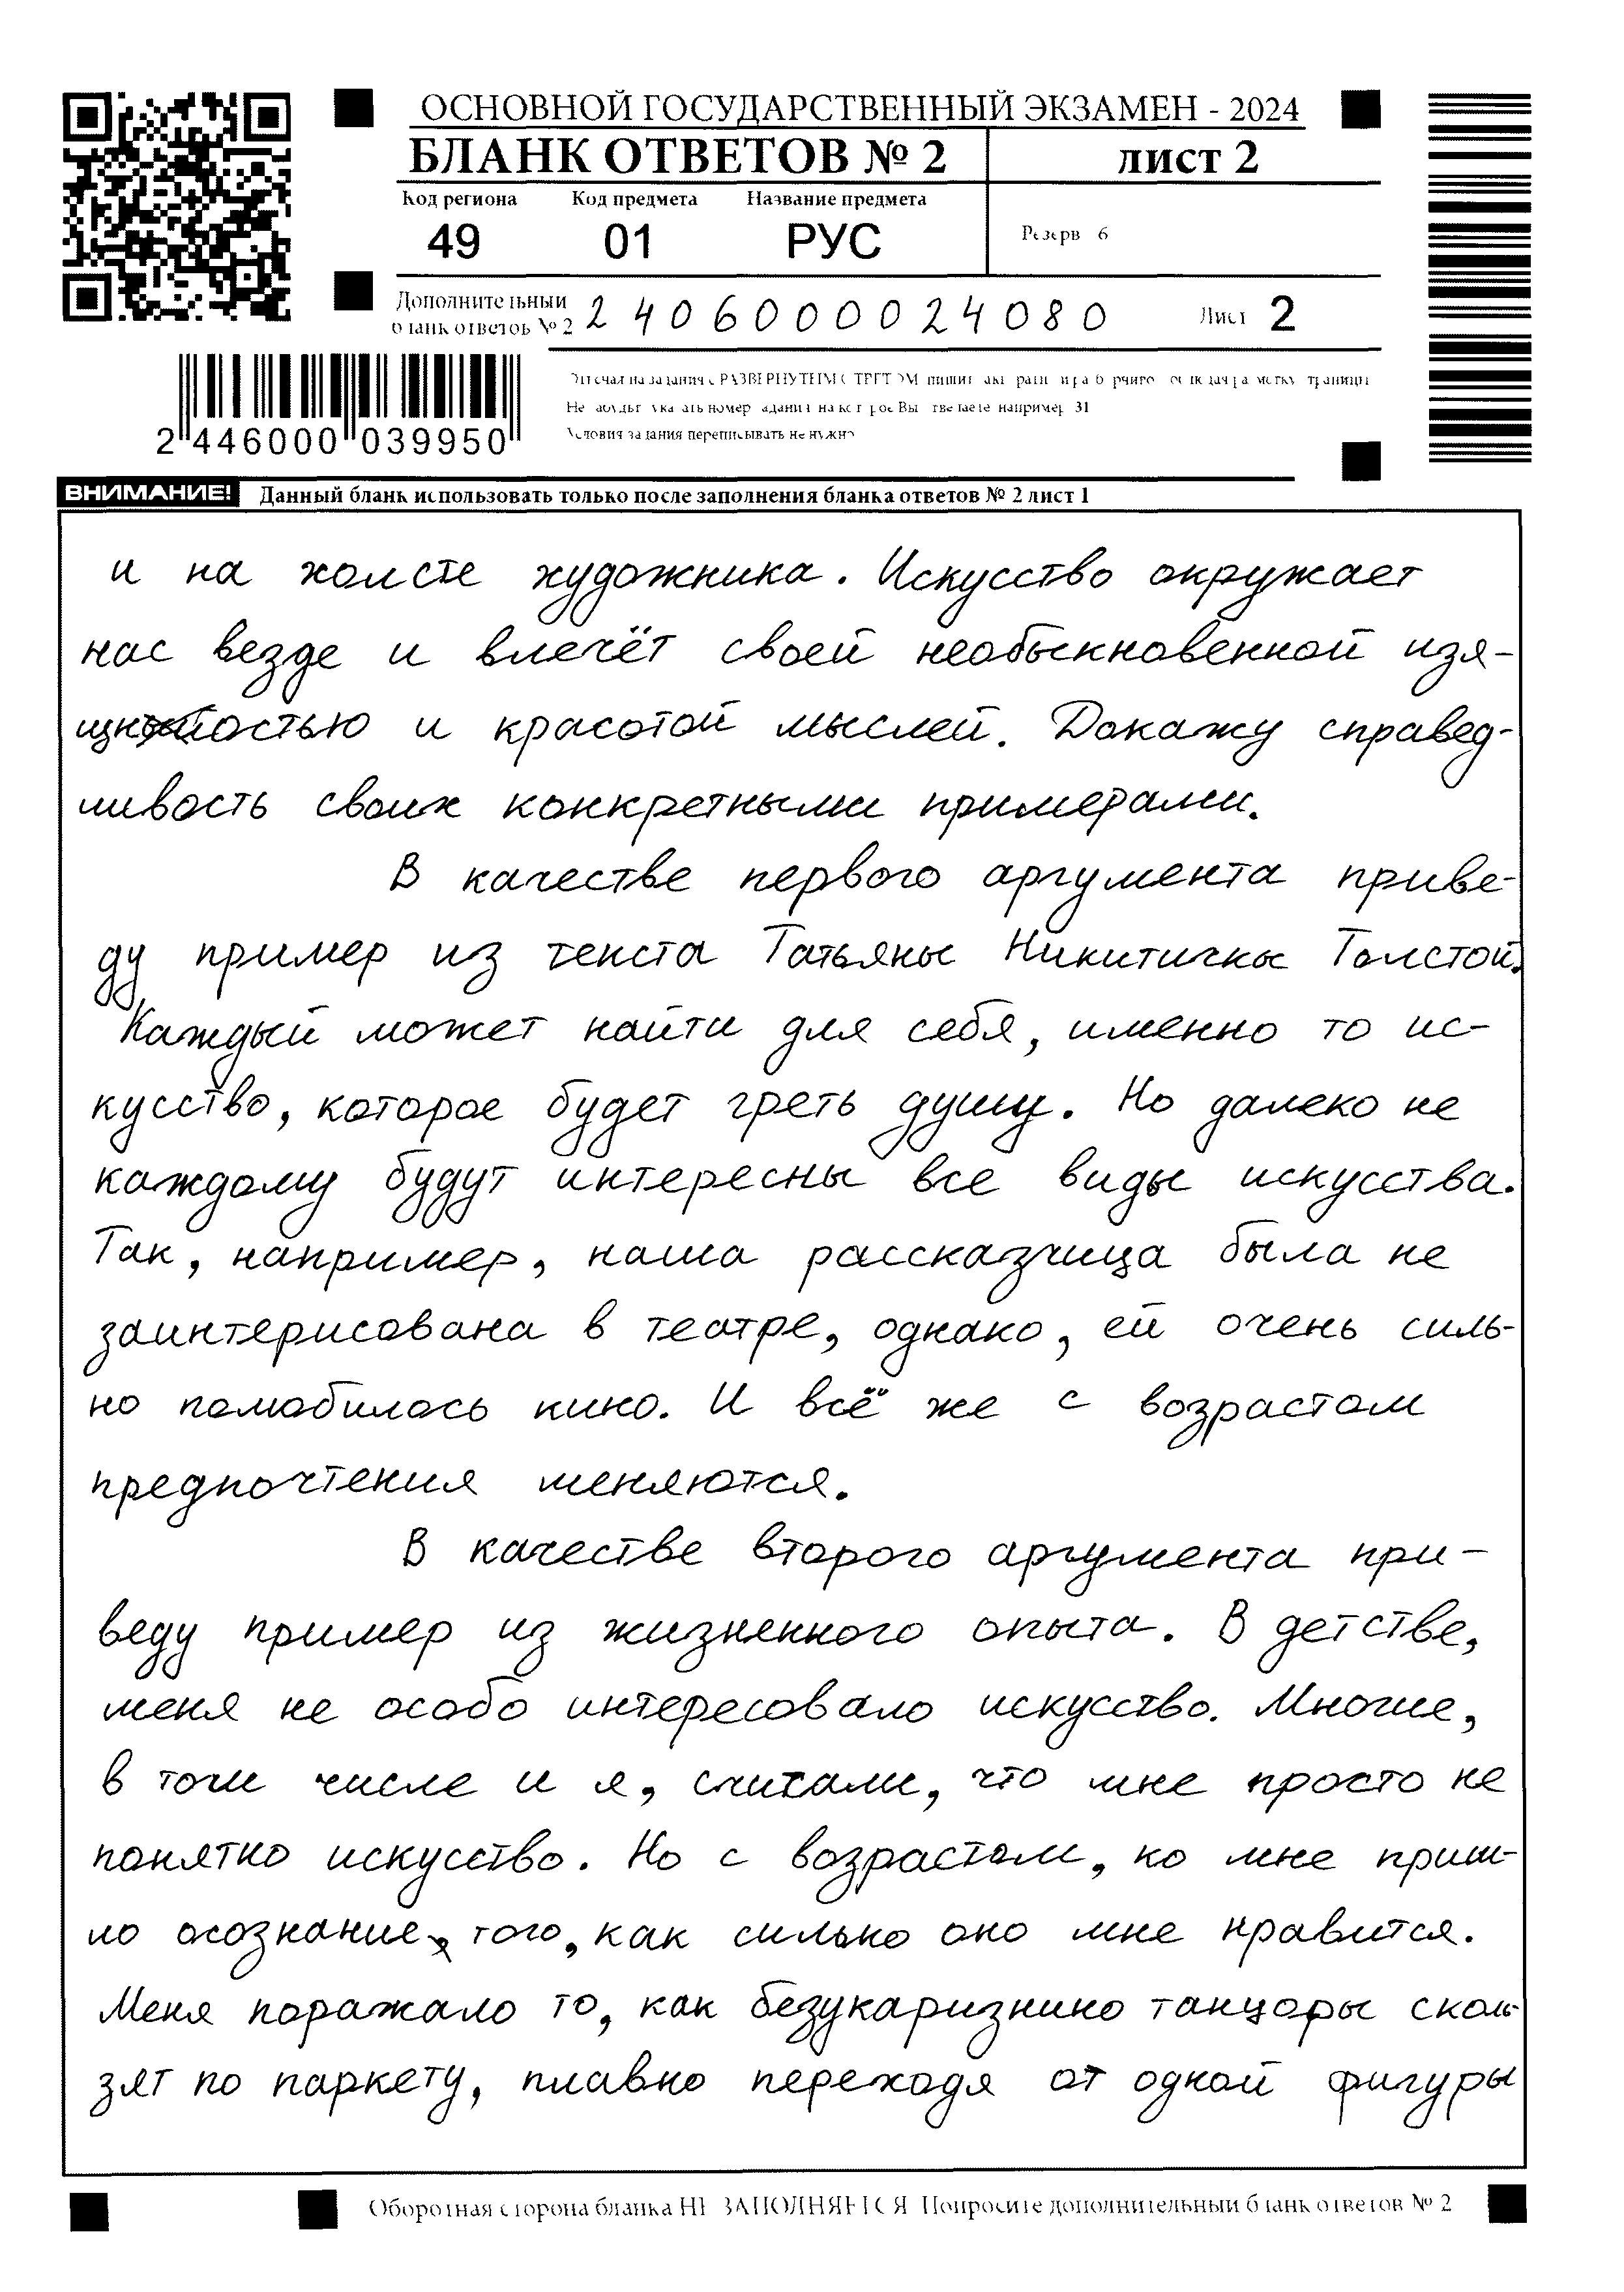 ОСНОВНОЙ ГОСУДАРСТВЕННЫЙ ЭКЗАМЕН - 2024
БЛАНК ОТВЕТОВ № 2
лист 2
Код региона Код предмета Название предмета
49 01 РУС
Резерв 6
Дополнительный
бланк ответов № 2
2406000024080
Лист 2
2 446000 039950
Условия задания переписывать не нужно
ВНИМАНИЕ! Данный бланк использовать только после заполнения бланка ответов № 2 лист 1
и на холсте художника. Искусство окружает
нас везде и влечёт своей необыкновенной изя-
щностью и красотой мыслей. Докажу справед-
ливость своих конкретными примерами.
В качестве первого аргумента приве-
ду пример из текста Татьяны Никитичны Толстой.
Каждый может найти для себя, именно то ис-
кусство, которое будет греть душу. Но далеко не
каждому будут интересны все виды искусства.
Так, например, наша рассказчица была не
заинтерисована в театре, однако, ей очень силь-
но полюбилось кино. И всё же с возрастом
предпочтения меняются.
В качестве второго аргумента при-
веду пример из жизненного опыта. В детстве,
меня не особо интересовало искусство. Многие,
в том числе и я, считали, что мне просто не
понятно искусство. Но с возрастом, ко мне приш-
ло осознание того, как сильно оно мне нравится.
Меня поражало то, как безукаризнино танцоры сколь-
зят по паркету, плавно переходя от одной фигуры
Оборотная сторона бланка НЕ ЗАПОЛНЯЕТСЯ Попросите дополнительный бланк ответов № 2